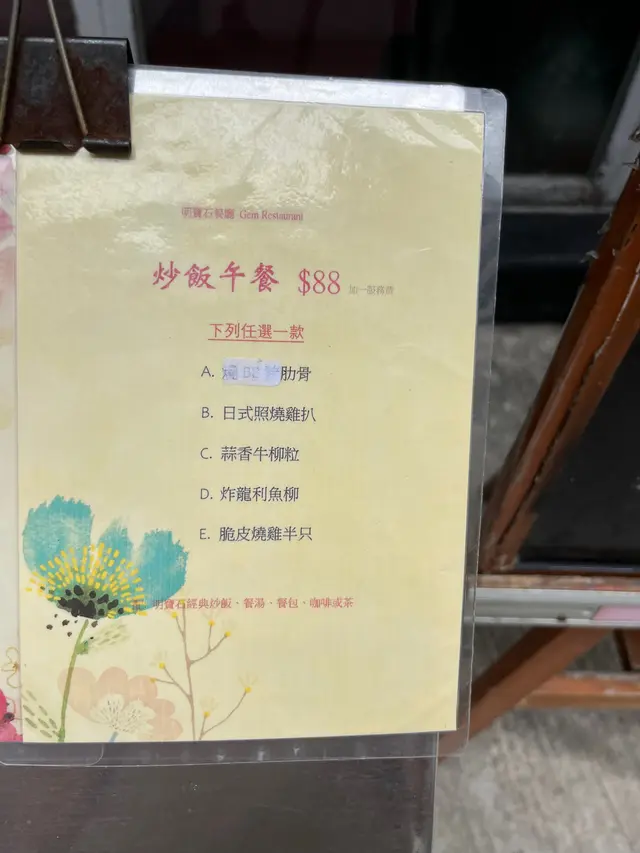 明寶石餐廳 Gem Restaurant
炒飯午餐 $88 加一服務費
下列任選一款
A. 肋骨
B. 日式照燒雞扒
C. 蒜香牛柳粒
D. 炸龍利魚柳
E. 脆皮燒雞半只
明寶石經典炒飯、餐湯、餐包、咖啡或茶